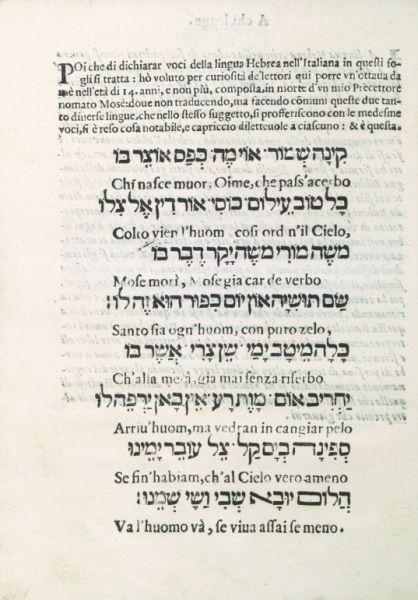 A chi legge.
POi che di dichiarar voci della lingua Hebrea nell'Italiana in questi fo-
gli si tratta : hò voluto per curiosità de'lettori qui porre vn'ottaua da
me nell'età di 14. anni, e non più, composta, in morte d'vn mio Precettore
nomato Mosè: doue non traducendo, ma facendo cōmuni queste due tan-
to diuerse lingue, che nello stesso suggetto, si profferiscono con le medesme
voci, si è reso cosa notabile, e capriccio diletteuole a ciascuno : & è questa.
קינה שמור· אוי מה כפס אוצר בו
Chi nasce muor, Oime, che pass'acerbo
כל טוב עילום· כוסי אור דין אל צלו
Colto vien l'huom, cosi ord n'il Cielo,
משה מורי משה יקר דבר בו
Mose morì, Mose gia car de verbo
שם תושיה און יום כפור הוא זה לו:
Santo sia ogn'huom, con puro zelo,
כלה מיטב ימי· שן צרי· אשר בו
Ch'alla metà, gia mai senza riserbo
יחריב אום· מות רע· אין כאן ירפה לו
Arriu'huom, ma vedran in cangiar pelo
ספינה בים קל· צל עובר ימינו
Se fin'habiam, ch'al Cielo vero ameno
הלום יובא שבי ושי שמנו:
Va l'huomo và, se viua assai se meno.